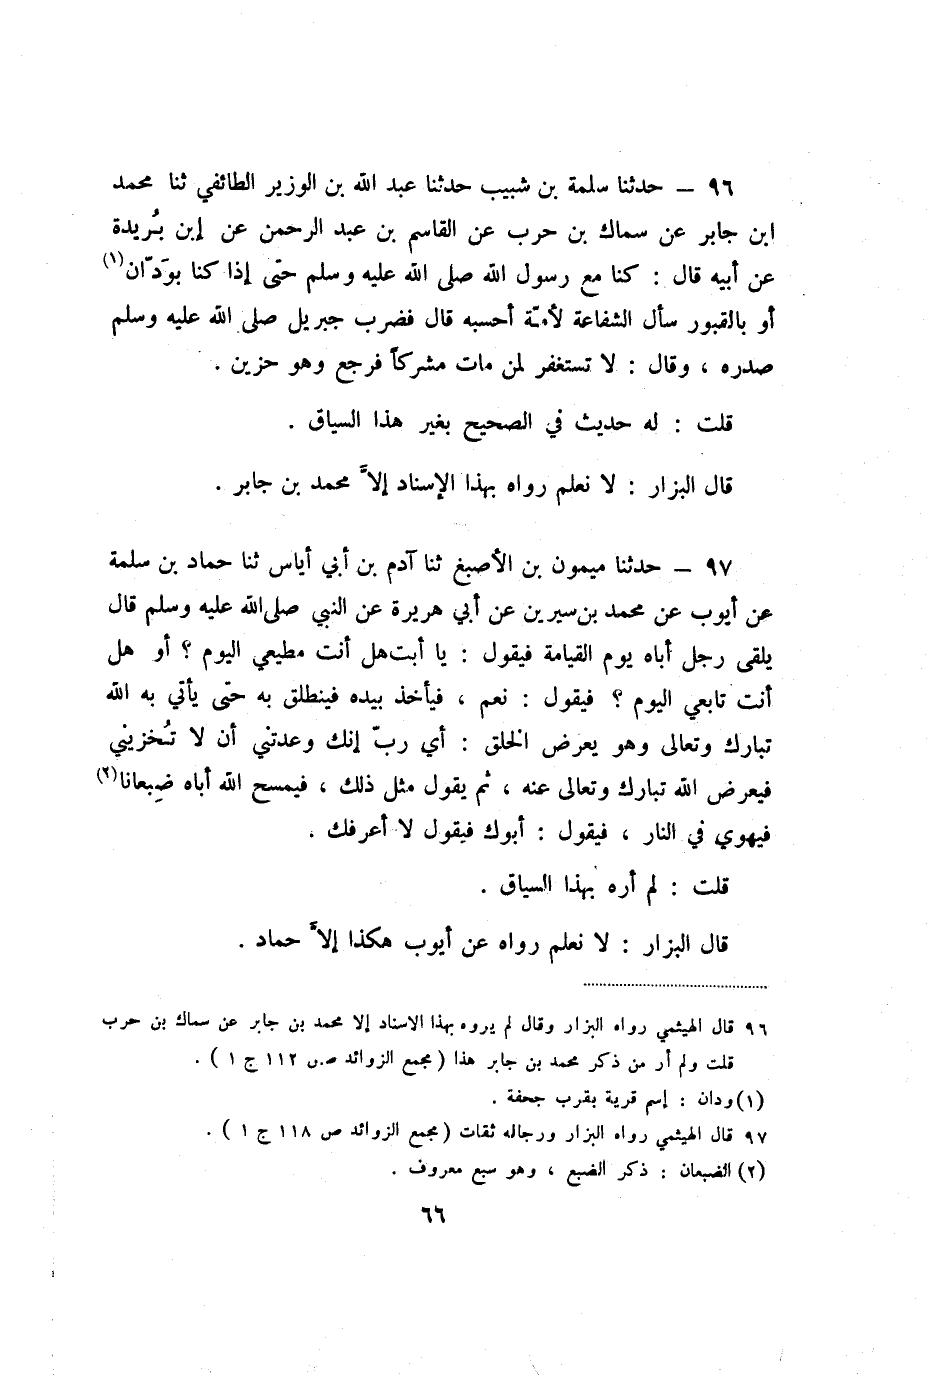 ٩٦ – حدثنا سلمة بن شبيب حدثنا عبد الله بن الوزير الطائفي ثنا محمد
ابن جابر عن سماك بن حرب عن القاسم بن عبد الرحمن عن إبن بُريدة
عن أبيه قال : كنا مع رسول الله صلى الله عليه وسلم حتى إذا كنا بوَدّان(١)
أو بالقبور سأل الشفاعة لأمّة أحسبه قال فضرب جبريل صلى الله عليه وسلم
صدره ، وقال : لا تستغفر لمن مات مشركاً فرجع وهو حزين .
قلت : له حديث في الصحيح بغير هذا السياق .
قال البزار : لا نعلم رواه بهذا الإسناد إلاَّ محمد بن جابر .
٩٧ – حدثنا ميمون بن الأصبغ ثنا آدم بن أبي أياس ثنا حماد بن سلمة
عن أيوب عن محمد بن سيرين عن أبي هريرة عن النبي صلى الله عليه وسلم قال
يلقى رجل أباه يوم القيامة فيقول : يا أبت هل أنت مطيعي اليوم ؟ أو هل
أنت تابعي اليوم ؟ فيقول : نعم ، فيأخذ بيده فينطلق به حتى يأتي به الله
تبارك وتعالى وهو يعرض الخلق : أي ربّ إنك وعدتني أن لا تُخزيني
فيعرض الله تبارك وتعالى عنه ، ثم يقول مثل ذلك ، فيمسح الله أباه ضِبعانا(٢)
فيهوي في النار ، فيقول : أبوك فيقول لا أعرفك .
قلت : لم أره بهذا السياق .
قال البزار : لا نعلم رواه عن أيوب هكذا إلاَّ حماد .
٩٦ قال الهيثمي رواه البزار وقال لم يروه بهذا الاسناد إلا محمد بن جابر عن سماك بن حرب
قلت ولم أر من ذكر محمد بن جابر هذا ( مجمع الزوائد ص ١١٢ ج ١ ) .
(١) ودان : إسم قرية بقرب جحفة .
٩٧ قال الهيثمي رواه البزار ورجاله ثقات ( مجمع الزوائد ص ١١٨ ج ١ ) .
(٢) الضبعان : ذكر الضبع ، وهو سبع معروف .
٦٦